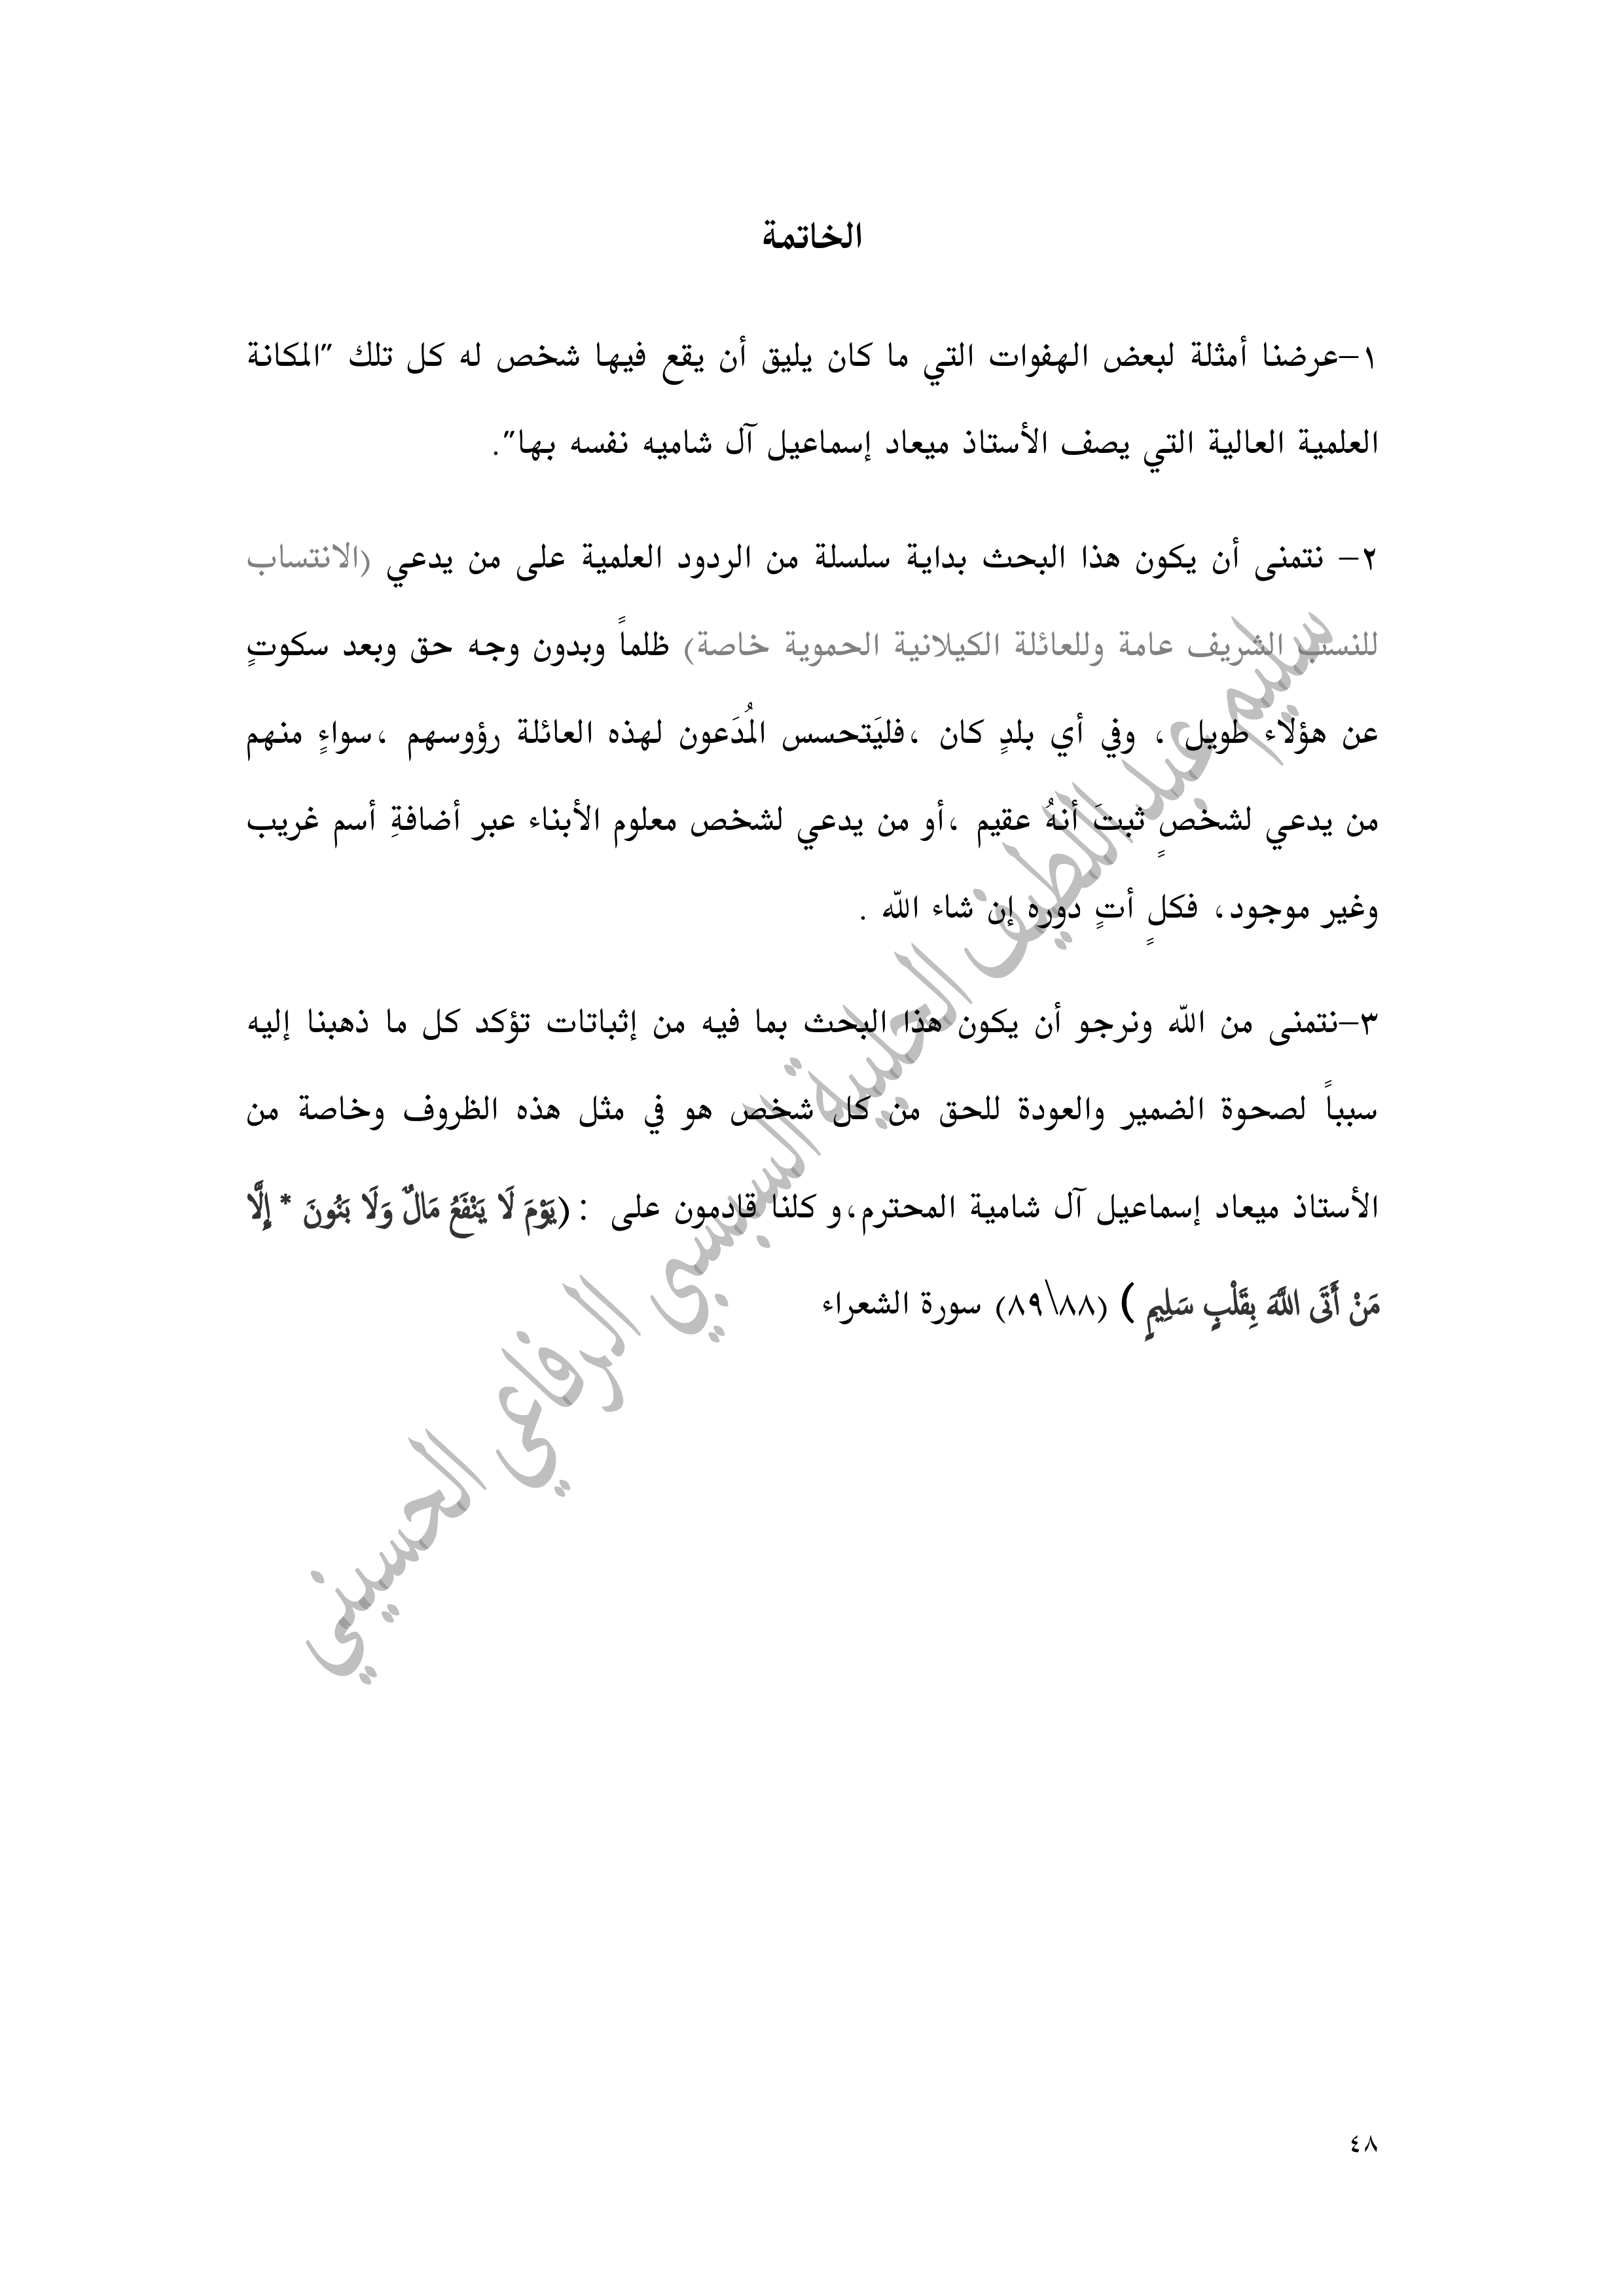 الخاتمة
١-عرضنا أمثلة لبعض الهفوات التي ما كان يليق أن يقع فيها شخص له كل تلك "المكانة
العلمية العالية التي يصف الأستاذ ميعاد إسماعيل آل شاميه نفسه بها".
٢- نتمنى أن يكون هذا البحث بداية سلسلة من الردود العلمية على من يدعي (الانتساب
للنسب الشريف عامة وللعائلة الكيلانية الحموية خاصة) ظلماً وبدون وجه حق وبعد سكوتٍ
عن هؤلاء طويل ، وفي أي بلدٍ كان ،فليَتحسس المُدَعون لهذه العائلة رؤوسهم ،سواءٍ منهم
من يدعي لشخصٍ ثبتَ أنهُ عقيم ،أو من يدعي لشخص معلوم الأبناء عبر أضافةِ أسم غريب
وغير موجود، فكلٍ أتٍ دوره إن شاء الله .
٣-نتمنى من الله ونرجو أن يكون هذا البحث بما فيه من إثباتات تؤكد كل ما ذهبنا إليه
سبباً لصحوة الضمير والعودة للحق من كل شخص هو في مثل هذه الظروف وخاصة من
الأستاذ ميعاد إسماعيل آل شامية المحترم،و كلنا قادمون على : (يَوْمَ لَا يَنْفَعُ مَالٌ وَلَا بَنُونَ * إِلَّا
مَنْ أَتَى اللَّهَ بِقَلْبٍ سَلِيمٍ ) (٨٨\٨٩) سورة الشعراء
سليم عبد اللطيف الحلبية السبسبي الرفاعي الحسيني
٤٨